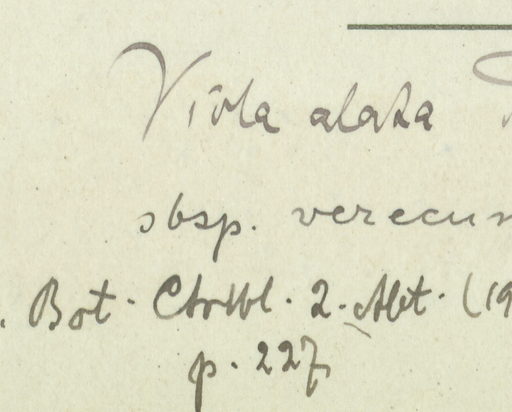 Viola alata
sbsp. verecun
. Bot. Ctrlbl. 2. Abt. (19
p. 227